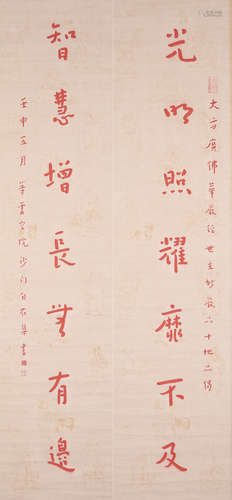 大方廣佛華嚴經世主妙嚴品十地品偈
光明照耀靡不及
智慧增長無有邊
壬申五月沙門集書